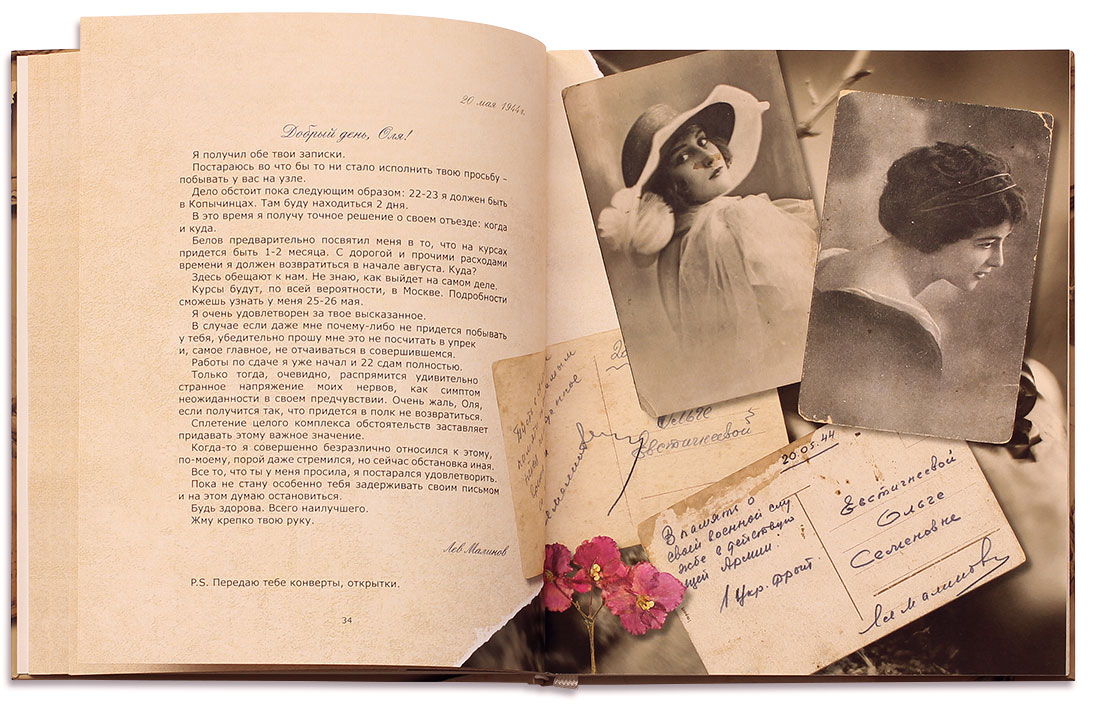 20 мая 1944г.
Добрый день, Оля!
Я получил обе твои записки.
Постараюсь во что бы то ни стало исполнить твою просьбу –
побывать у вас на узле.
Дело обстоит пока следующим образом: 22-23 я должен быть
в Копычинцах. Там буду находиться 2 дня.
В это время я получу точное решение о своем отъезде: когда
и куда.
Белов предварительно посвятил меня в то, что на курсах
придется быть 1-2 месяца. С дорогой и прочими расходами
времени я должен возвратиться в начале августа. Куда?
Здесь обещают к нам. Не знаю, как выйдет на самом деле.
Курсы будут, по всей вероятности, в Москве. Подробности
сможешь узнать у меня 25-26 мая.
Я очень удовлетворен за твое высказанное.
В случае если даже мне почему-либо не придется побывать
у тебя, убедительно прошу мне это не посчитать в упрек
и, самое главное, не отчаиваться в совершившемся.
Работы по сдаче я уже начал и 22 сдам полностью.
Только тогда, очевидно, распрямится удивительно
странное напряжение моих нервов, как симптом
неожиданности в своем предчувствии. Очень жаль, Оля,
если получится так, что придется в полк не возвратиться.
Сплетение целого комплекса обстоятельств заставляет
придавать этому важное значение.
Когда-то я совершенно безразлично относился к этому,
по-моему, порой даже стремился, но сейчас обстановка иная.
Все то, что ты у меня просила, я постарался удовлетворить.
Пока не стану особенно тебя задерживать своим письмом
и на этом думаю остановиться.
Будь здорова. Всего наилучшего.
Жму крепко твою руку.
Лев Малинов
P.S. Передаю тебе конверты, открытки.
34
Ольге
Евстигнеевой
20.05.44
В память о
своей военной служ
жбе в действую
щей Армии.
1 Укр. фронт
Евстигнеевой
Ольге
Семеновне
Лев Малинов